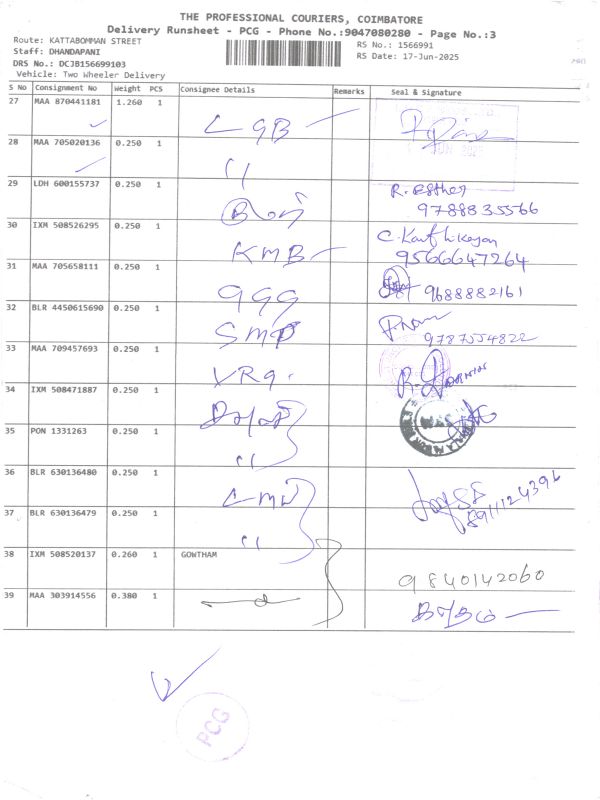 THE PROFESSIONAL COURIERS, COIMBATORE
Delivery Runsheet - PCG - Phone No.:9047080280 - Page No.:3
Route: KATTABOMMAN STREET
Staff: DHANDAPANI
DRS No.: DCJB156699103
Vehicle: Two Wheeler Delivery
RS No.: 1566991
RS Date: 17-Jun-2025
S No Consignment No Weight PCS Consignee Details Remarks Seal & Signature
27 MAA 870441181 1.260 1 LGB
28 MAA 705020136 0.250 1 "
29 LDH 600155737 0.250 1 R. Esther
9788835566
30 IXM 508526295 0.250 1 KMB C. Karthikeyan
9566647264
31 MAA 705658111 0.250 1 999 9688882161
32 BLR 4450615690 0.250 1 SMP
9787554822
33 MAA 709457693 0.250 1 VRG.
34 IXM 508471887 0.250 1
35 PON 1331263 0.250 1 "
36 BLR 630136480 0.250 1
8911124396
37 BLR 630136479 0.250 1 "
38 IXM 508520137 0.260 1 GOWTHAM
9840142060
39 MAA 303914556 0.380 1
PCG